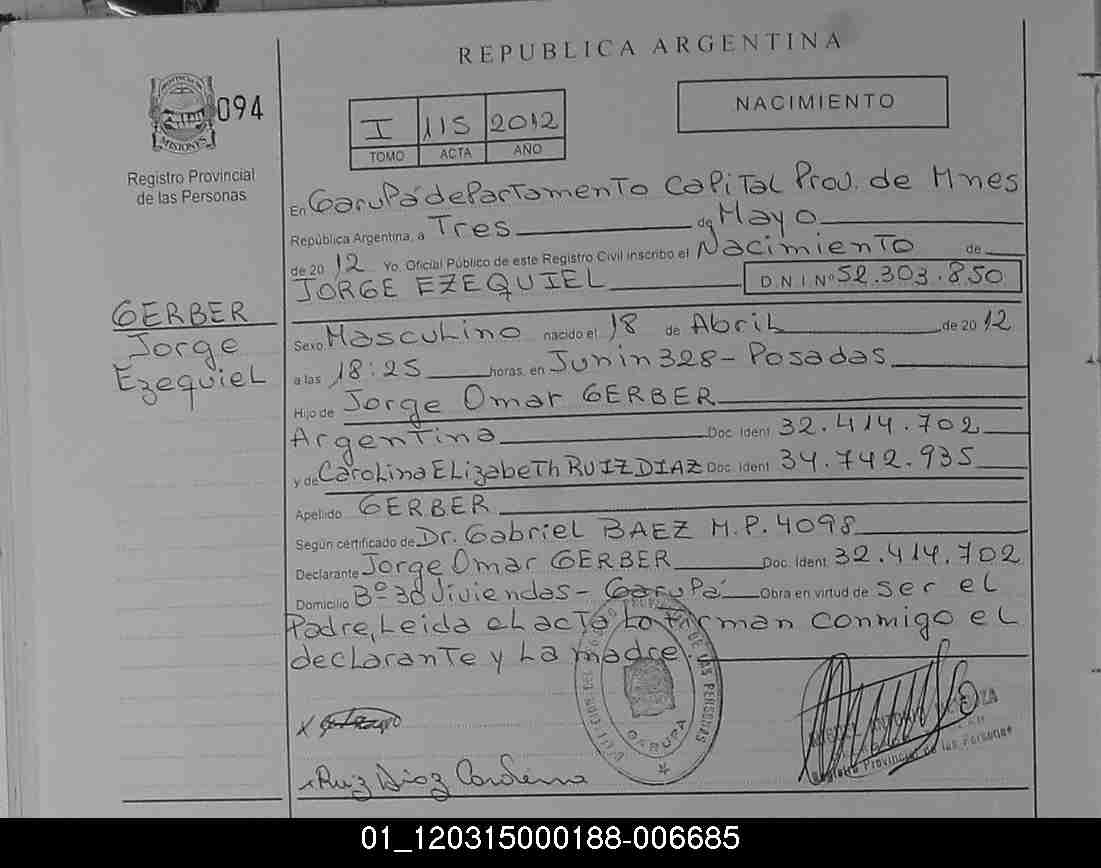 REPUBLICA ARGENTINA
PROVINCIA DE
MISIONES
094
Registro Provincial
de las Personas
I 115 2012
TOMO ACTA AÑO
NACIMIENTO
En Garupá departamento Capital Prov. de Mnes
República Argentina, a Tres de Mayo
de 2012 Yo, Oficial Público de este Registro Civil inscribo el Nacimiento de
JORGE EZEQUIEL D N I Nº 52.303.850
GERBER
Jorge
Ezequiel
Sexo Masculino nacido el 18 de Abril de 2012
a las 18:25 horas, en Junin 328 - Posadas
Hijo de Jorge Omar GERBER
Argentina Doc. Ident. 32.414.702
y de Carolina Elizabeth RUIZ DIAZ Doc. Ident. 34.742.935
Apellido GERBER
Según certificado de Dr. Gabriel BAEZ M.P. 4098
Declarante Jorge Omar GERBER Doc. Ident. 32.414.702
Domicilio Bº 30 Viviendas - Garupá Obra en virtud de ser el
Padre, Leida el acta la firman conmigo el
declarante y la madre
DE LAS PERSONAS
GARUPA
x
x Ruiz Diaz Carolina
Registro Provincial de las Personas
01_120315000188-006685